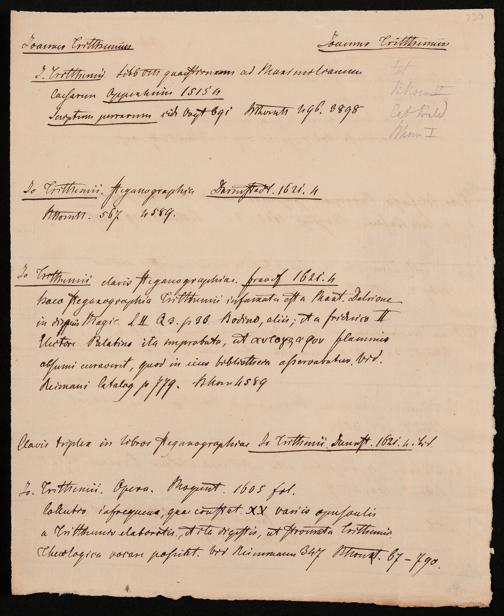 Joannes Tritthemius Joannes Tritthemius
J. Tritthemii. libb octo quaestionum ad Maximilianum
Caesarem Oppenheim 1515 4
Scriptum rarum vid. Vogt 691 496. 3898
Jo Tritthemii. Steganographia Darmstadt. 1621. 4
567 4589.
Jo Tritthemii clavis steganographiae. francf 1621. 4
haec steganographia Tritthemii infamata est a Mart. Delrione
in disquis Magic. L II Q 3. p 98 Bodino, aliis; et a friderico II
Electore Palatino ita improbata, ut αυτογραφον flammis
absumi curaverit, quod in eius bibliotheca asservabatur. vid.
Reimani Catalog p 779. 4589
Clavis triplex in libros steganographiae Jo Tritthemii, Darmst. 1621. 4.
Jo. Tritthemii. Opera. Mogunt. 1605 fol.
Collectio infrequens, quae constat XX variis opusculis
a Trittemio elaboratis, et ita digestis, ut Trittemii
Theologica vocari possit. vid Reimmann 347 67 – 790.